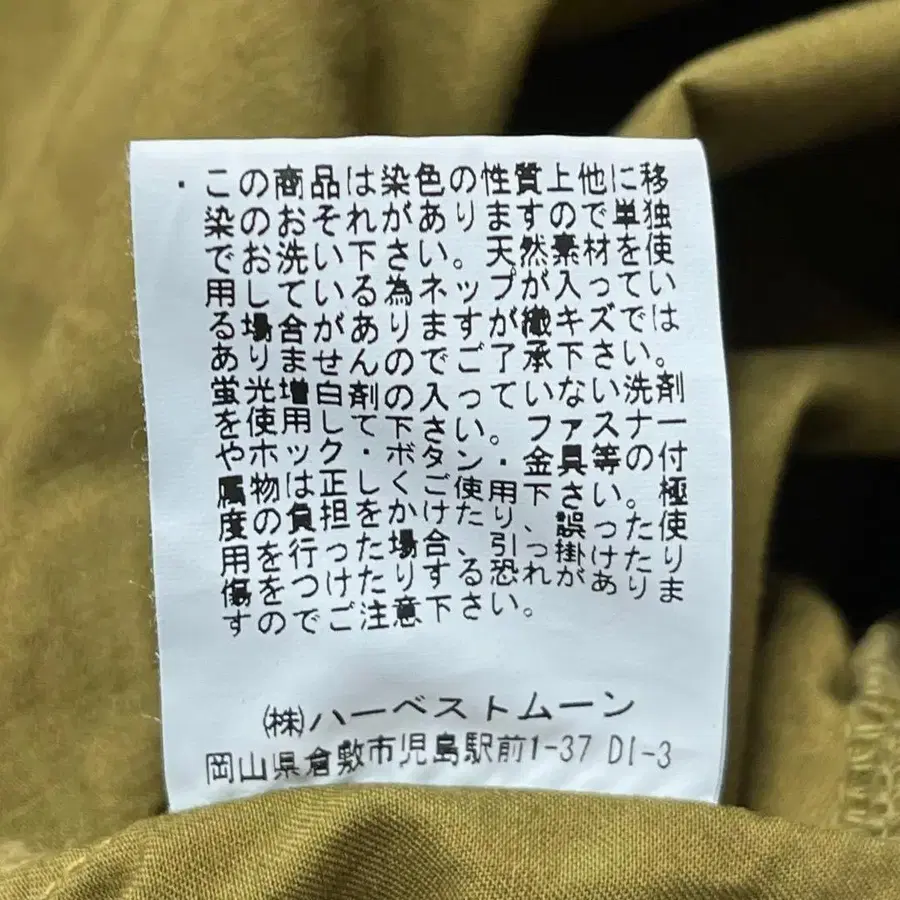 ・この商品は染色の性質上他に移
染のおそれがありますので単独
でお洗い下さい。天然素材を使
用している為ネップが入ってい
る場合がありますが織キズでは
ありませんのでご了承下さい。
蛍光増白剤の入っていない洗剤
を使用して下さい。ファスナー
やホック・ボタン・金具等の付
属物は正しくご使用下さい。極
度の負担をかけたり、誤った使
用を行った場合、引っ掛けたり
傷をつけたりする恐れがありま
すのでご注意下さい。
㈱ハーベストムーン
岡山県倉敷市児島駅前1-37 D1-3